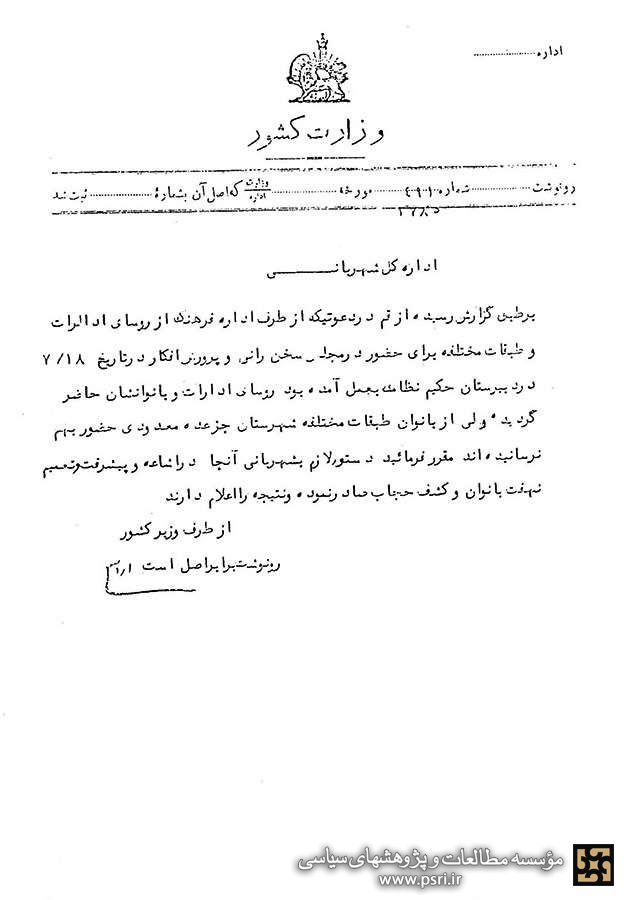 اداره
وزارت کشور
رونوشت شماره مورخه وزارت اداره که اصل آن بشماره ثبت شد
اداره کل شهربانی
برطبق گزارش رسیده از قم در دعوتیکه از طرف اداره فرهنگ از روسای ادارات
و طبقات مختلفه برای حضور در مجلس سخن رانی و پرورش افکار در تاریخ ۷/۱۸
در دبیرستان حکیم نظامی بعمل آمده بود روسای ادارات و بانوانشان حاضر
گردیده ولی از بانوان طبقات مختلفه شهرستان جز عده معدودی حضور بهم
نرسانیده اند مقرر فرمائید دستور لازم بشهربانی آنجا در اشاعه و پیشرفت و تعمیم
نهضت بانوان و کشف حجاب صادر نموده و نتیجه را اعلام دارند
از طرف وزیر کشور
رونوشت برابر اصل است
مؤسسه مطالعات و پژوهشهای سیاسی
www.psri.ir